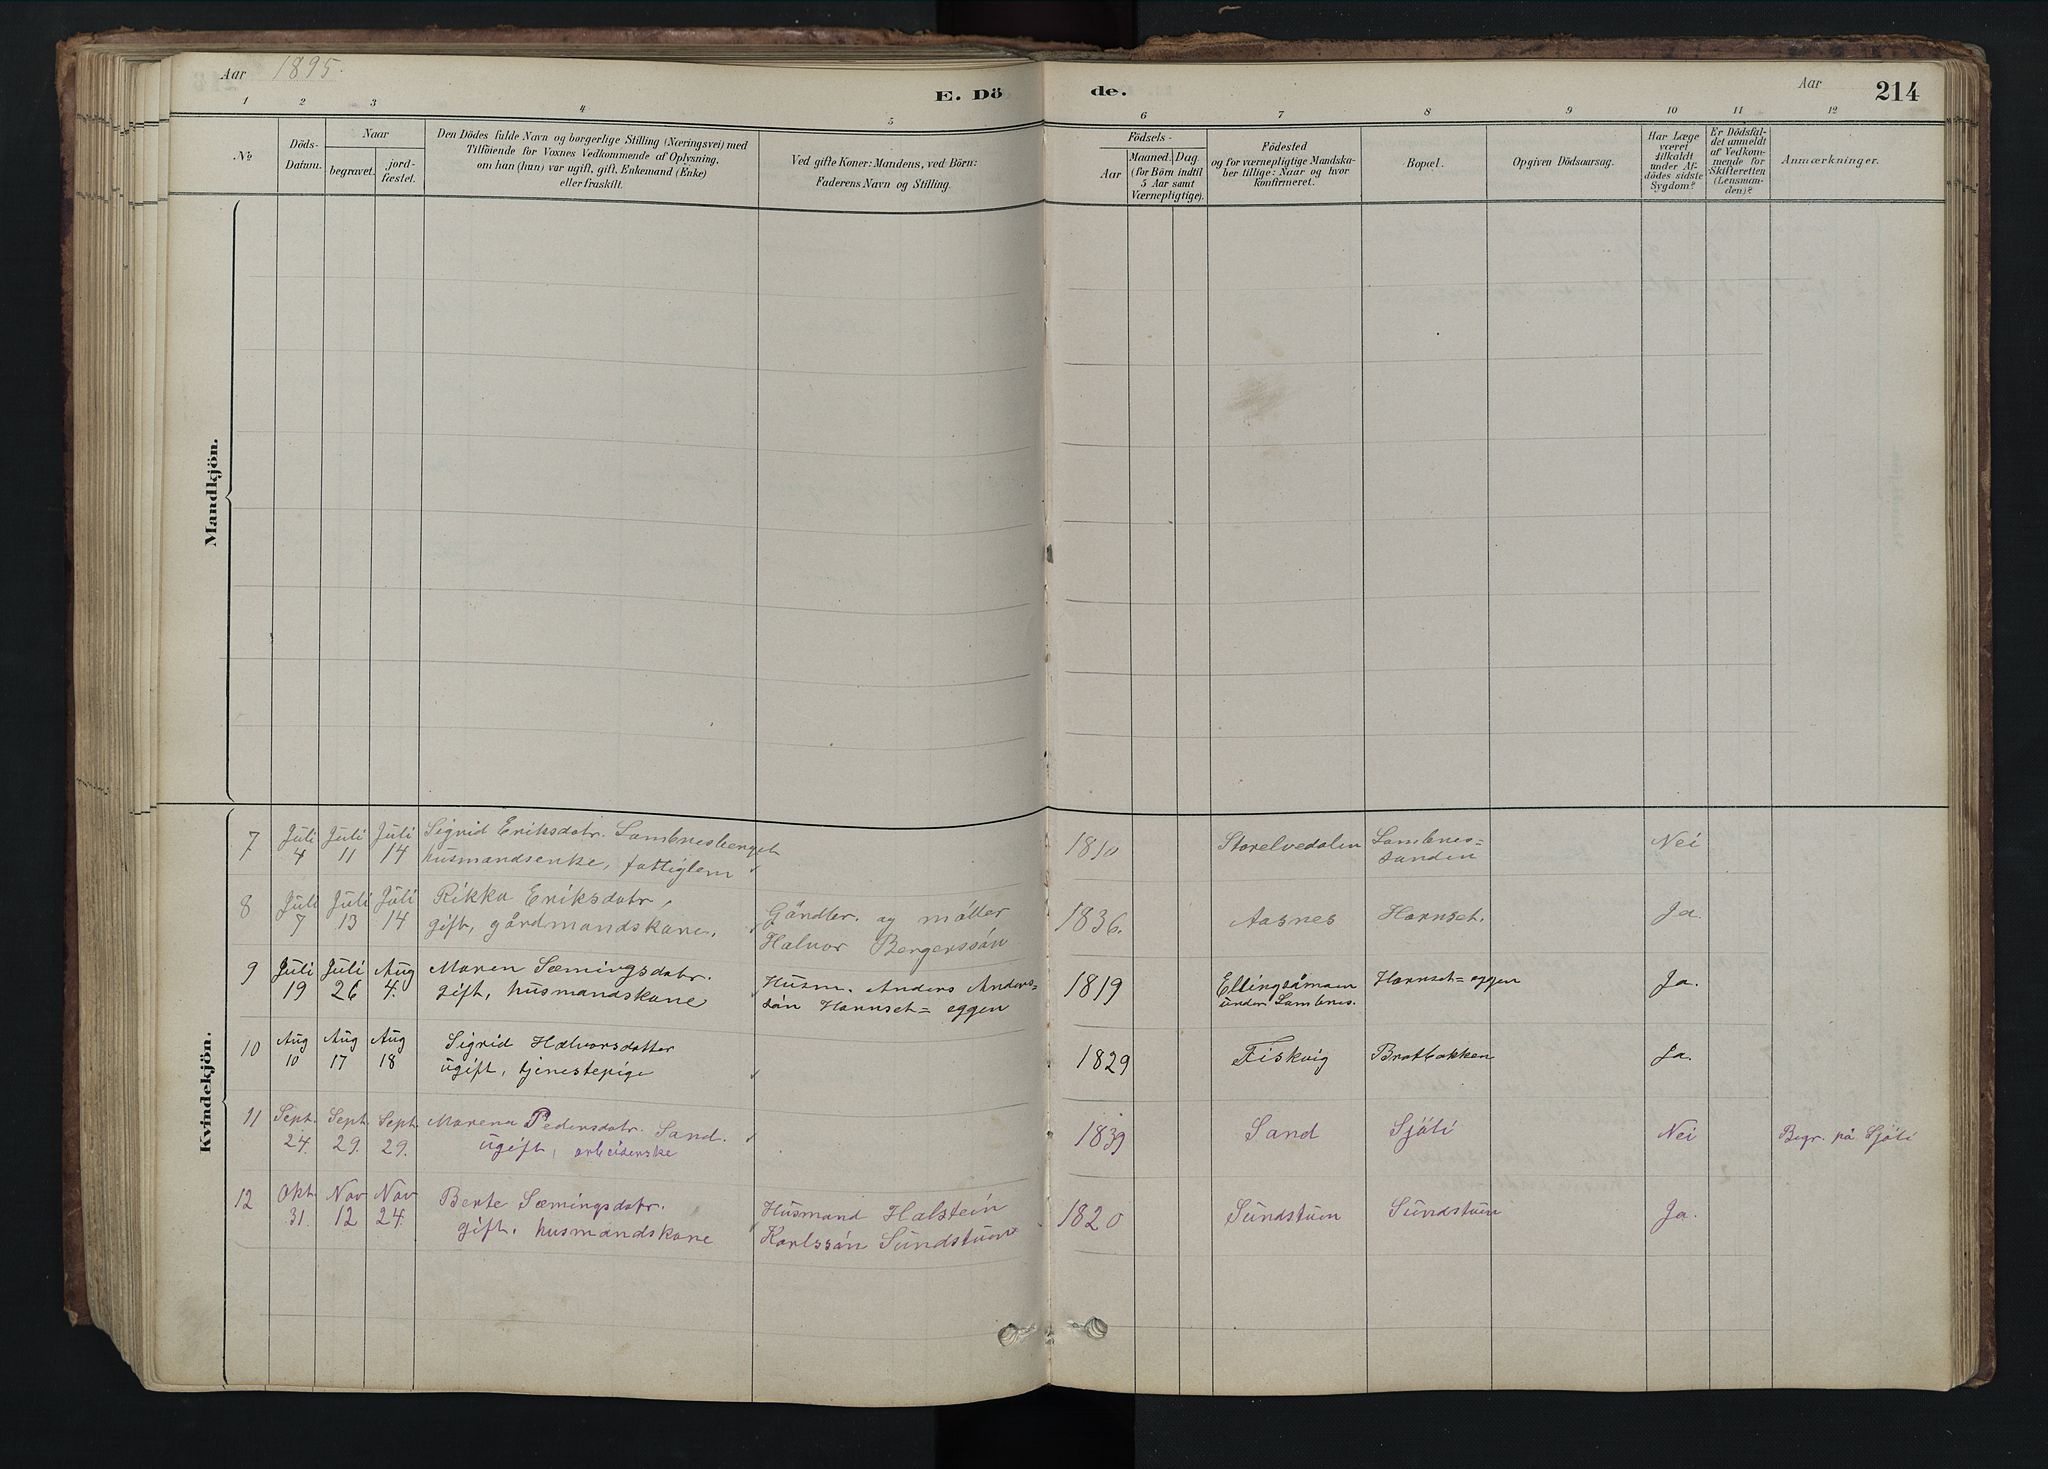 Aar 1895.
E. Dö
de.
Aar
214
1 2 3 4 5 6 7 8 9 10 11 12
№
Döds-
Datum.
Naar
begravet.
jord-
fæstet.
Den Dödes fulde Navn og borgerlige Stilling (Næringsvei) med
Tilföiende for Voxnes Vedkommende af Oplysning,
om han (hun) var ugift, gift, Enkemand (Enke)
eller fraskilt.
Ved gifte Koner: Mandens, ved Börn:
Faderens Navn og Stilling.
Födsels-
Aar
Maaned. Dag.
(for Börn indtil
5 Aar samt
Værnepligtige).
Födested
og for værnepligtige Mandska-
ber tillige: Naar og hvor
konfirmeret.
Bopæl.
Opgiven Dödsaarsag.
Har Læge
været
tilkaldt
under Af-
dödes sidste
Sygdom?
Er Dödsfal-
det anmeldt
af Vedkom-
mende for
Skifteretten
(Lensman-
den)?
Anmærkninger.
Mandkjön.
Kvindekjön.
7 Juli 4 Juli 11 Juli 14 Sigrid Eriksdatr. Sambneshenget
husmandsenke, fattiglem
1810 Storelvedalen Sambnes=
sanden Nei
8 Juli 7 Juli 13 Juli 14 Rikka Eriksdatr,
gift, gårdmandskone,
Gåndbr. og møller
Halvor Bergerssøn
1836. Aasnes Hornset. Ja.
9 Juli 19 Juli 26 Aug 4. Maren Sæmingsdatr.
gift, husmandskone
Husm. Anders Anders=
søn Hornset=eggen
1819 Ellingsåmoen
under Sambnes. Hornset=eggen Ja.
10 Aug 10 Aug 17 Aug 18 Sigrid Halvorsdatter
ugift, tjenestepige
1829 Fiskvig Bratbakken Ja.
11 Sept. 24. Sept. 29. Sept. 29. Marena Pedersdatr. Sand.
ugift, arbeiderske
1839 Sand Sjøli Nei Begr. på Sjøli
12 Okt. 31. Nov 12 Nov 24. Berte Sæmingsdatr.
gift, husmandskone
Husmand Halstein
Karlssøn Sundstuen
1820 Sundstuen Sundstuen Ja.